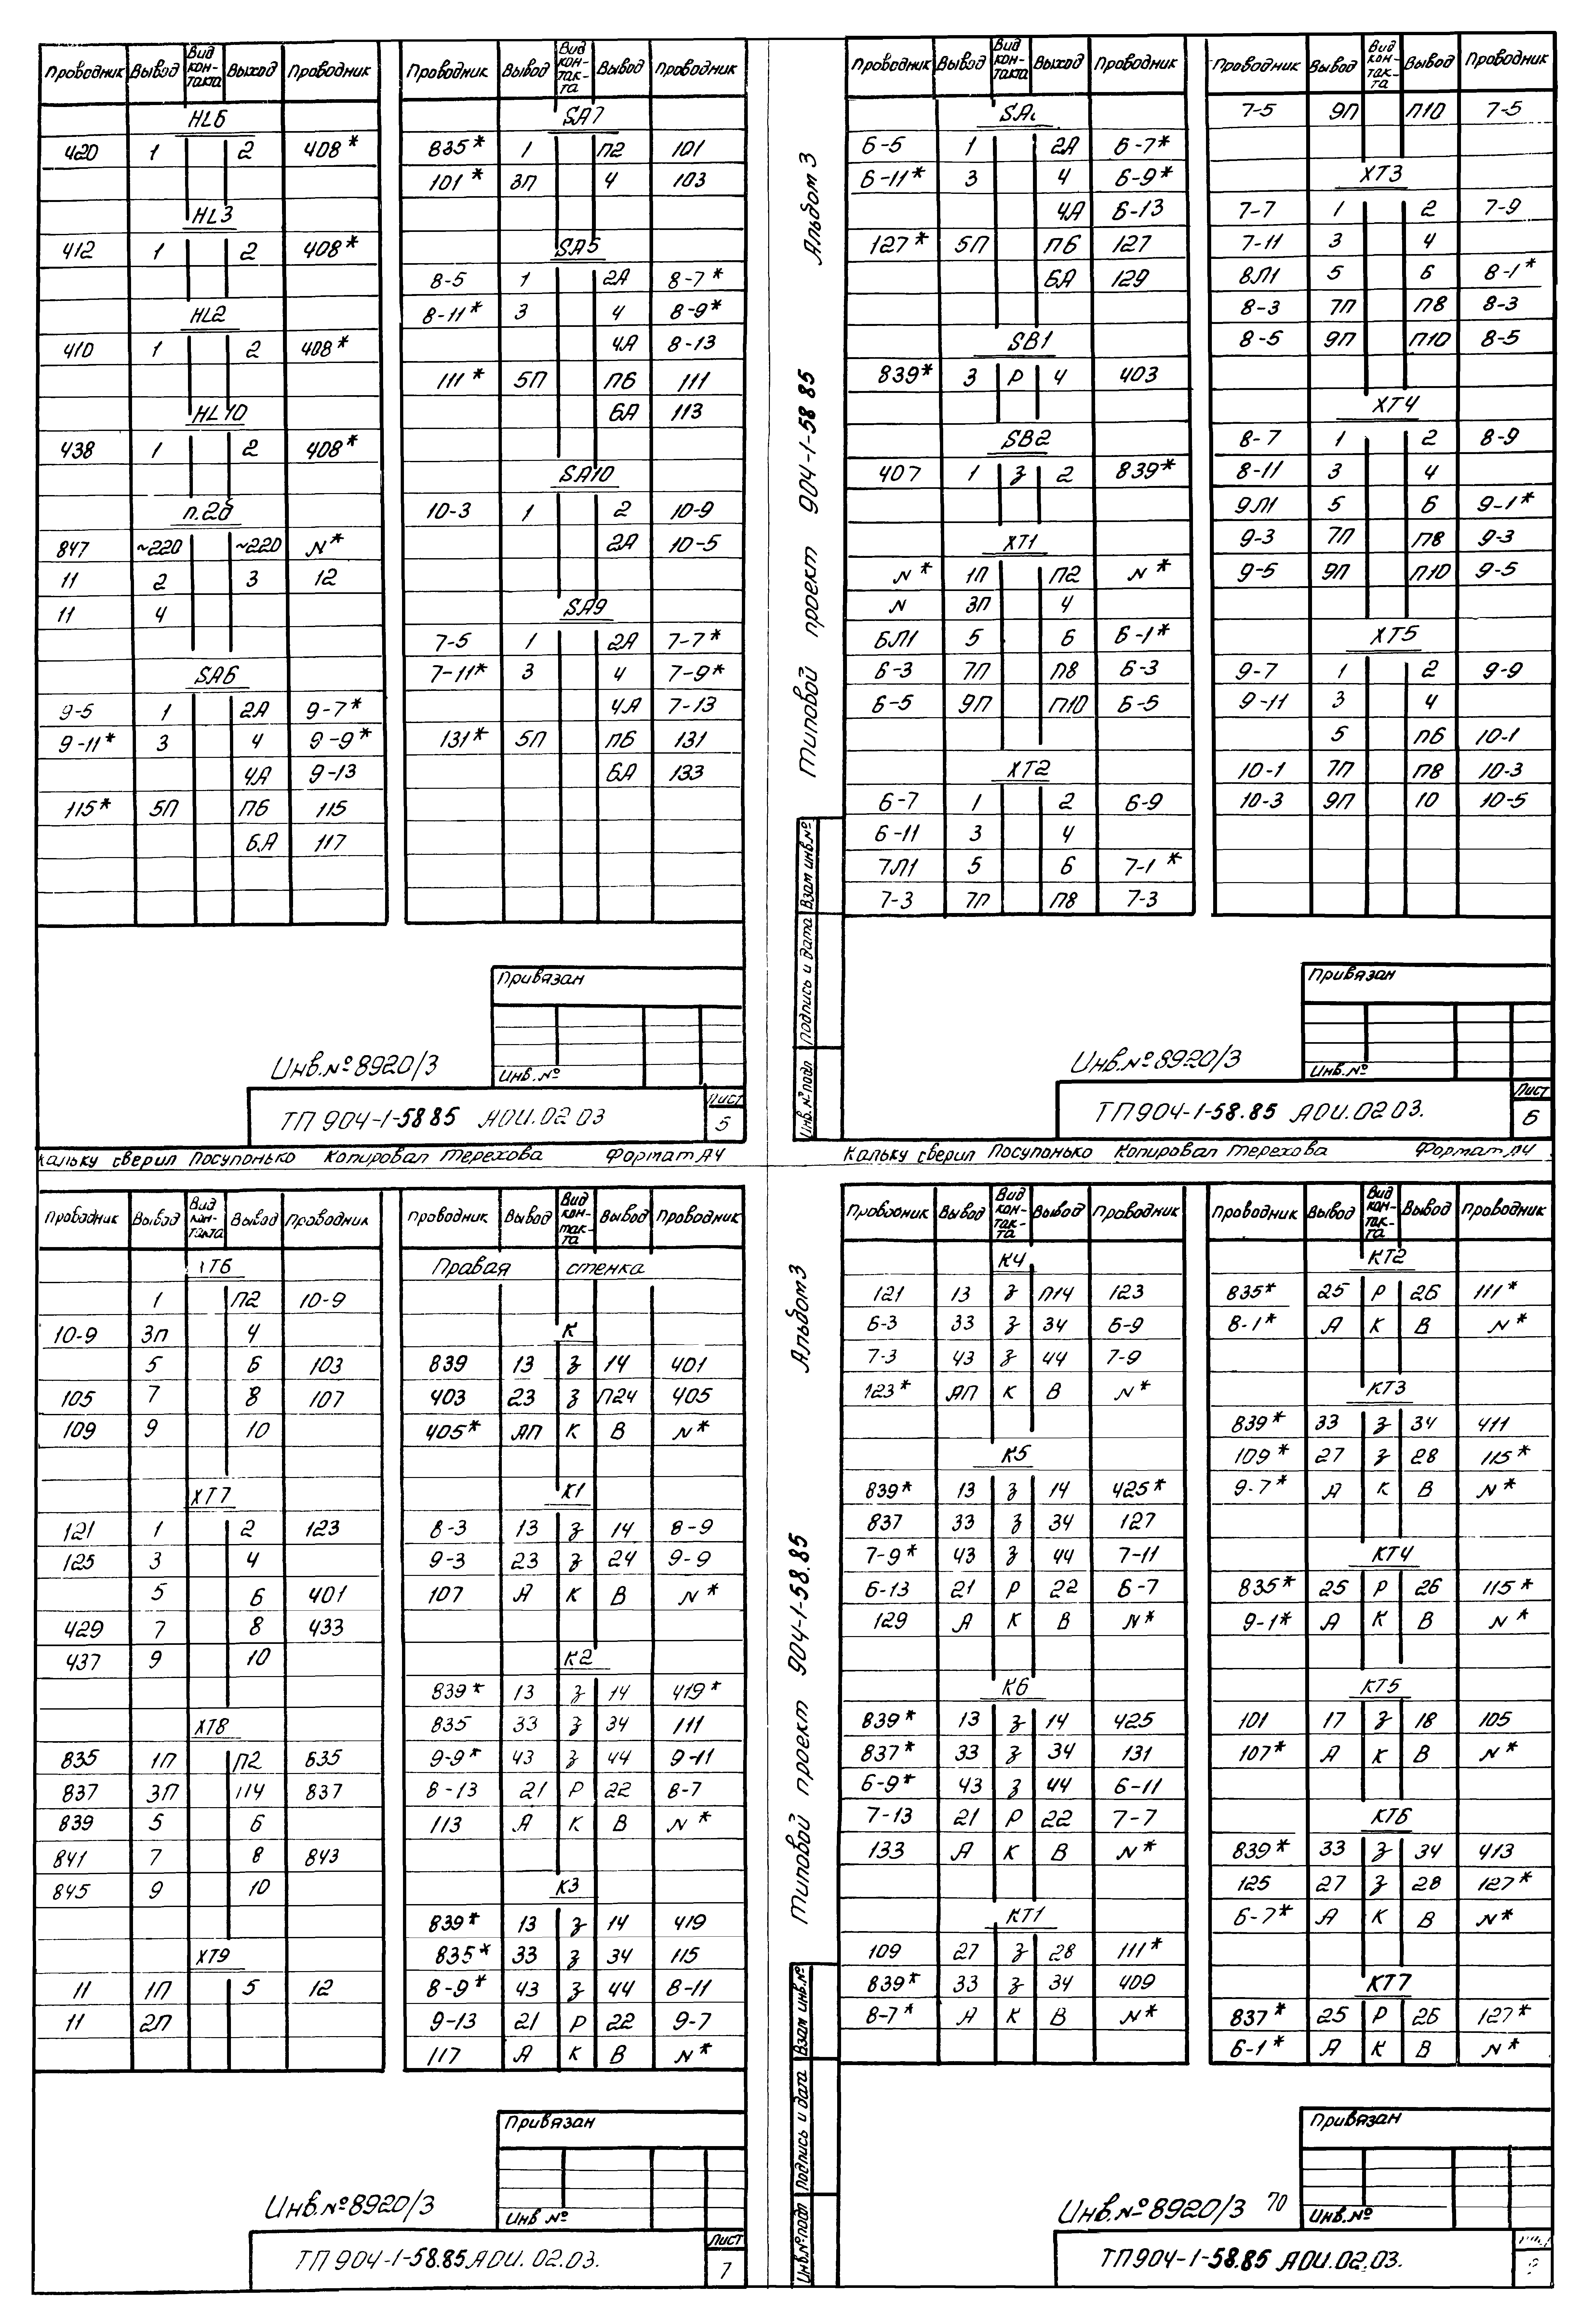 Проводник Вывод Вид контакта Выход Проводник
HL6
420 1 2 408*
HL3
412 1 2 408*
HL2
410 1 2 408*
HL10
438 1 2 408*
п.2б
847 ~220 ~220 N*
11 2 3 12
11 4
SA6
9-5 1 2А 9-7*
9-11* 3 4 9-9*
4А 9-13
115* 5П П6 115
6А 117
Проводник Вывод Вид контакта Вывод Проводник
SA7
835* 1 П2 101
101* 3П 4 103
SA5
8-5 1 2А 8-7*
8-11* 3 4 8-9*
4А 8-13
111* 5П П6 111
6А 113
SA10
10-3 1 2 10-9
2А 10-5
SA9
7-5 1 2А 7-7*
7-11* 3 4 7-9*
4А 7-13
131* 5П П6 131
6А 133
Привязан
Инв.№
Инв.№8920/3
ТП 904-1-58 85 АОИ.02 03
Лист
5
Кальку сверил Посупонько Копировал Терехова Формат А4
Альбом 3
Типовой проект 904-1-58 85
Проводник Вывод Вид контакта Выход Проводник
SA
6-5 1 2А 6-7*
6-11* 3 4 6-9*
4А 6-13
127* 5П П6 127
6А 129
SB1
839* 3 Р 4 403
SB2
407 1 З 2 839*
XT1
N* 1П П2 N*
N 3П 4
6Л1 5 6 6-1*
6-3 7П П8 6-3
6-5 9П П10 6-5
XT2
6-7 1 2 6-9
6-11 3 4
7Л1 5 6 7-1*
7-3 7П П8 7-3
Проводник Вывод Вид контакта Вывод Проводник
7-5 9П П10 7-5
XT3
7-7 1 2 7-9
7-11 3 4
8Л1 5 6 8-1*
8-3 7П П8 8-3
8-5 9П П10 8-5
XT4
8-7 1 2 8-9
8-11 3 4
9Л1 5 6 9-1*
9-3 7П П8 9-3
9-5 9П П10 9-5
XT5
9-7 1 2 9-9
9-11 3 4
5 П6 10-1
10-1 7П П8 10-3
10-3 9П 10 10-5
Инв.№подл Подпись и дата Взам инв.№
Привязан
Инв.№
Инв.№8920/3
ТП 904-1-58.85 АОИ.02 03.
Лист
6
Кальку сверил Посупонько Копировал Терехова Формат А4
Проводник Вывод Вид контакта Вывод Проводник
XT6
1 П2 10-9
10-9 3П 4
5 6 103
105 7 8 107
109 9 10
XT7
121 1 2 123
125 3 4
5 6 401
429 7 8 433
437 9 10
XT8
835 1П П2 835
837 3П П4 837
839 5 6
841 7 8 843
845 9 10
XT9
11 1П 5 12
11 2П
Проводник Вывод Вид контакта Вывод Проводник
Правая стенка
К
839 13 З 14 401
403 23 З П24 405
405* АП К В N*
К1
8-3 13 З 14 8-9
9-3 23 З 24 9-9
107 А К В N*
К2
839* 13 З 14 419*
835 33 З 34 111
9-9* 43 З 44 9-11
8-13 21 Р 22 8-7
113 А К В N*
К3
839* 13 З 14 419
835* 33 З 34 115
8-9* 43 З 44 8-11
9-13 21 Р 22 9-7
117 А К В N*
Привязан
Инв №
Инв.№8920/3
ТП 904-1-58.85 АОИ.02.03.
Лист
7
Альбом 3
Типовой проект 904-1-58.85
Проводник Вывод Вид контакта Вывод Проводник
К4
121 13 З П14 123
6-3 33 З 34 6-9
7-3 43 З 44 7-9
123* АП К В N*
К5
839* 13 З 14 425*
837 33 З 34 127
7-9* 43 З 44 7-11
6-13 21 Р 22 6-7
129 А К В N*
К6
839* 13 З 14 425
837* 33 З 34 131
6-9* 43 З 44 6-11
7-13 21 Р 22 7-7
133 А К В N*
КТ1
109 27 З 28 111*
839* 33 З 34 409
8-7* А К В N*
Проводник Вывод Вид контакта Вывод Проводник
КТ2
835* 25 Р 26 111*
8-1* А К В N*
КТ3
839* 33 З 34 411
109* 27 З 28 115*
9-7* А К В N*
КТ4
835* 25 Р 26 115*
9-1* А К В N*
КТ5
101 17 З 18 105
107* А К В N*
КТ6
839* 33 З 34 413
125 27 З 28 127*
6-7* А К В N*
КТ7
837* 25 Р 26 127*
6-1* А К В N*
Инв.№подл Подпись и дата Взам инв.№
Привязан
Инв.№
Инв.№8920/3 70
ТП 904-1-58.85 АОИ.02.03.